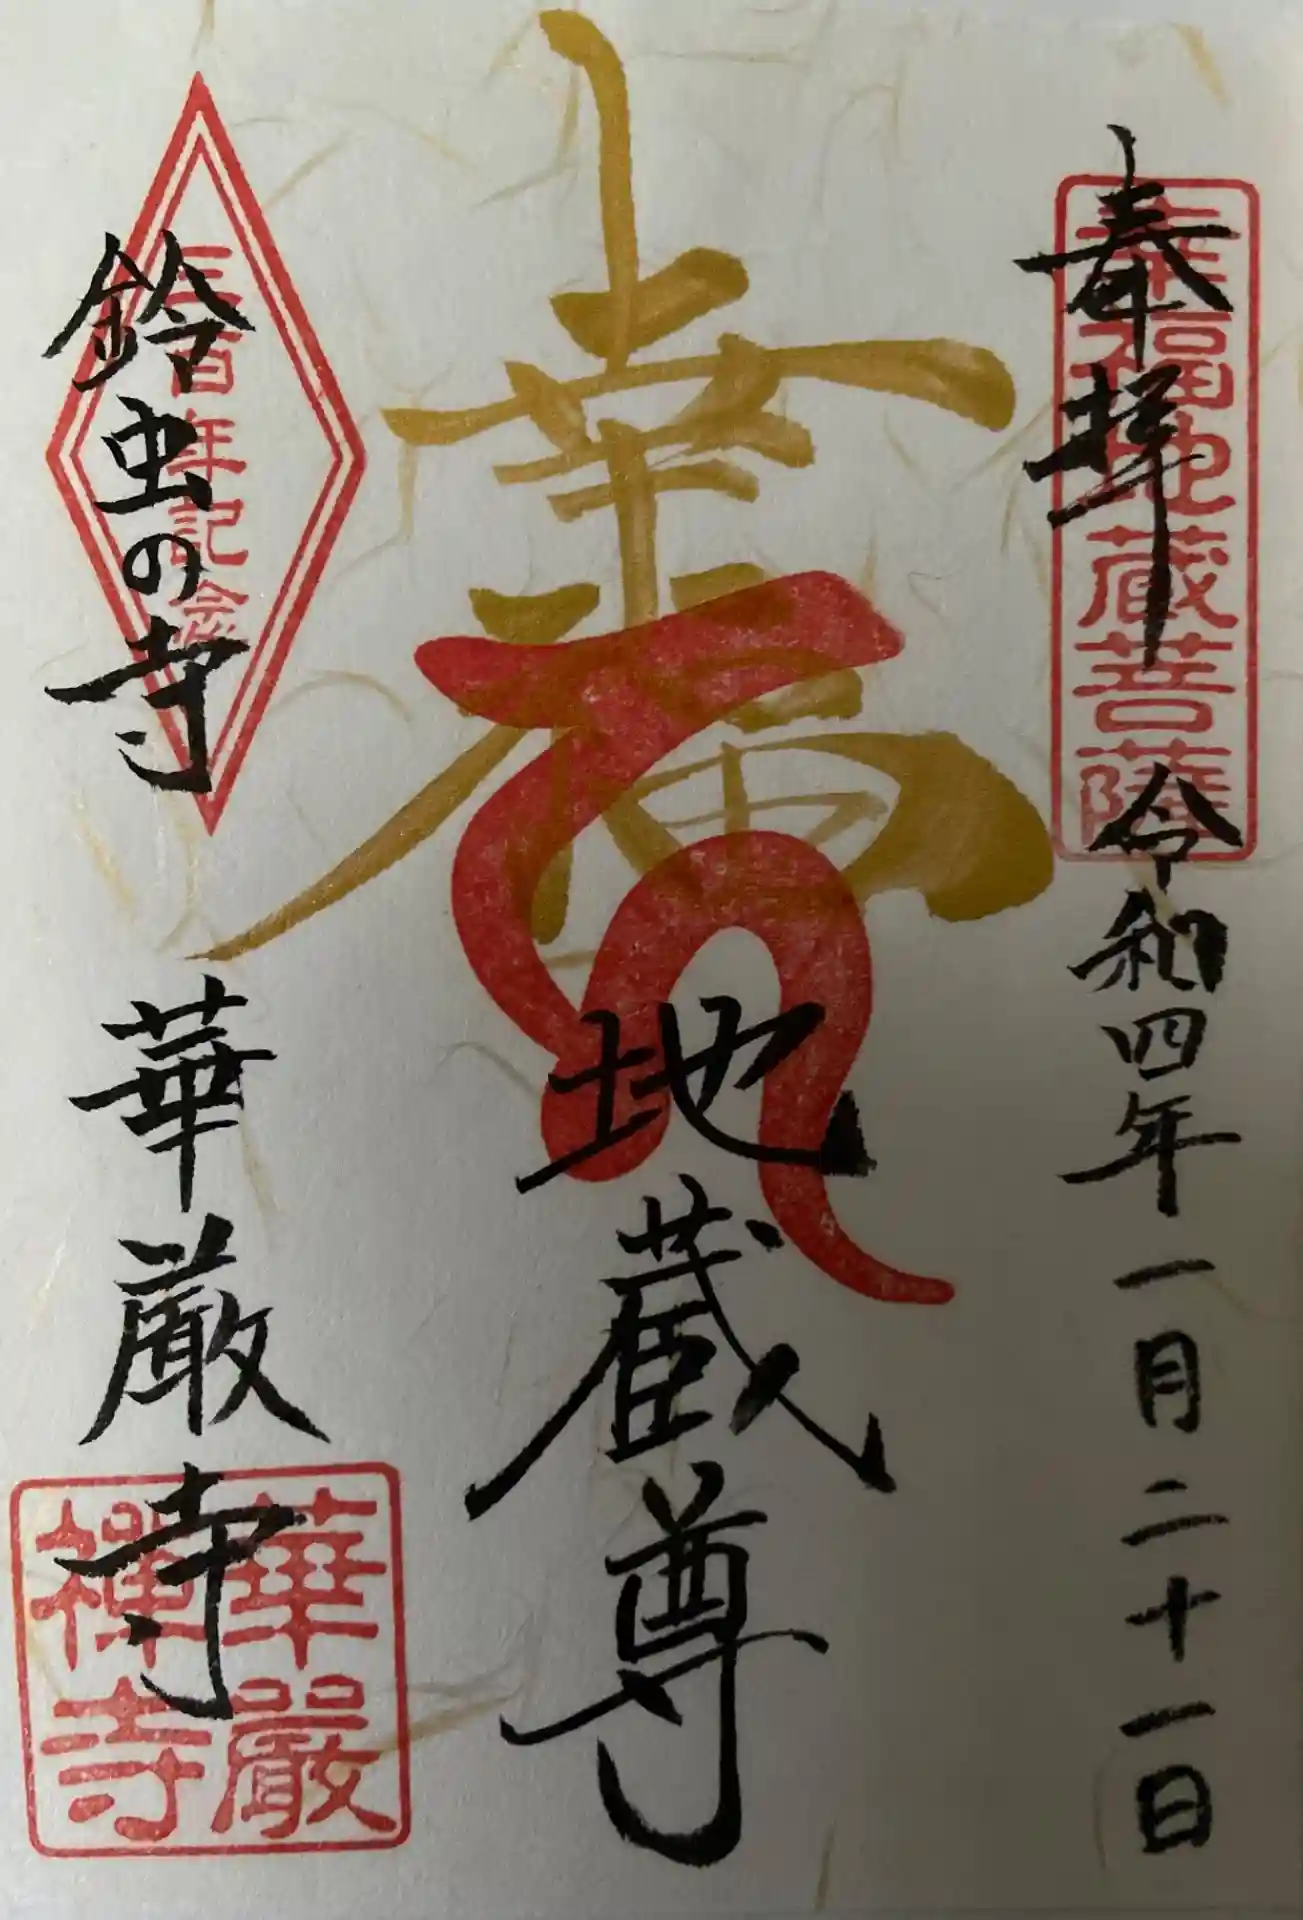 奉拝
幸福地蔵菩薩
令和四年一月二十一日
幸福
地蔵尊
三百年記念
鈴虫の寺
華厳寺
華嚴
禅寺